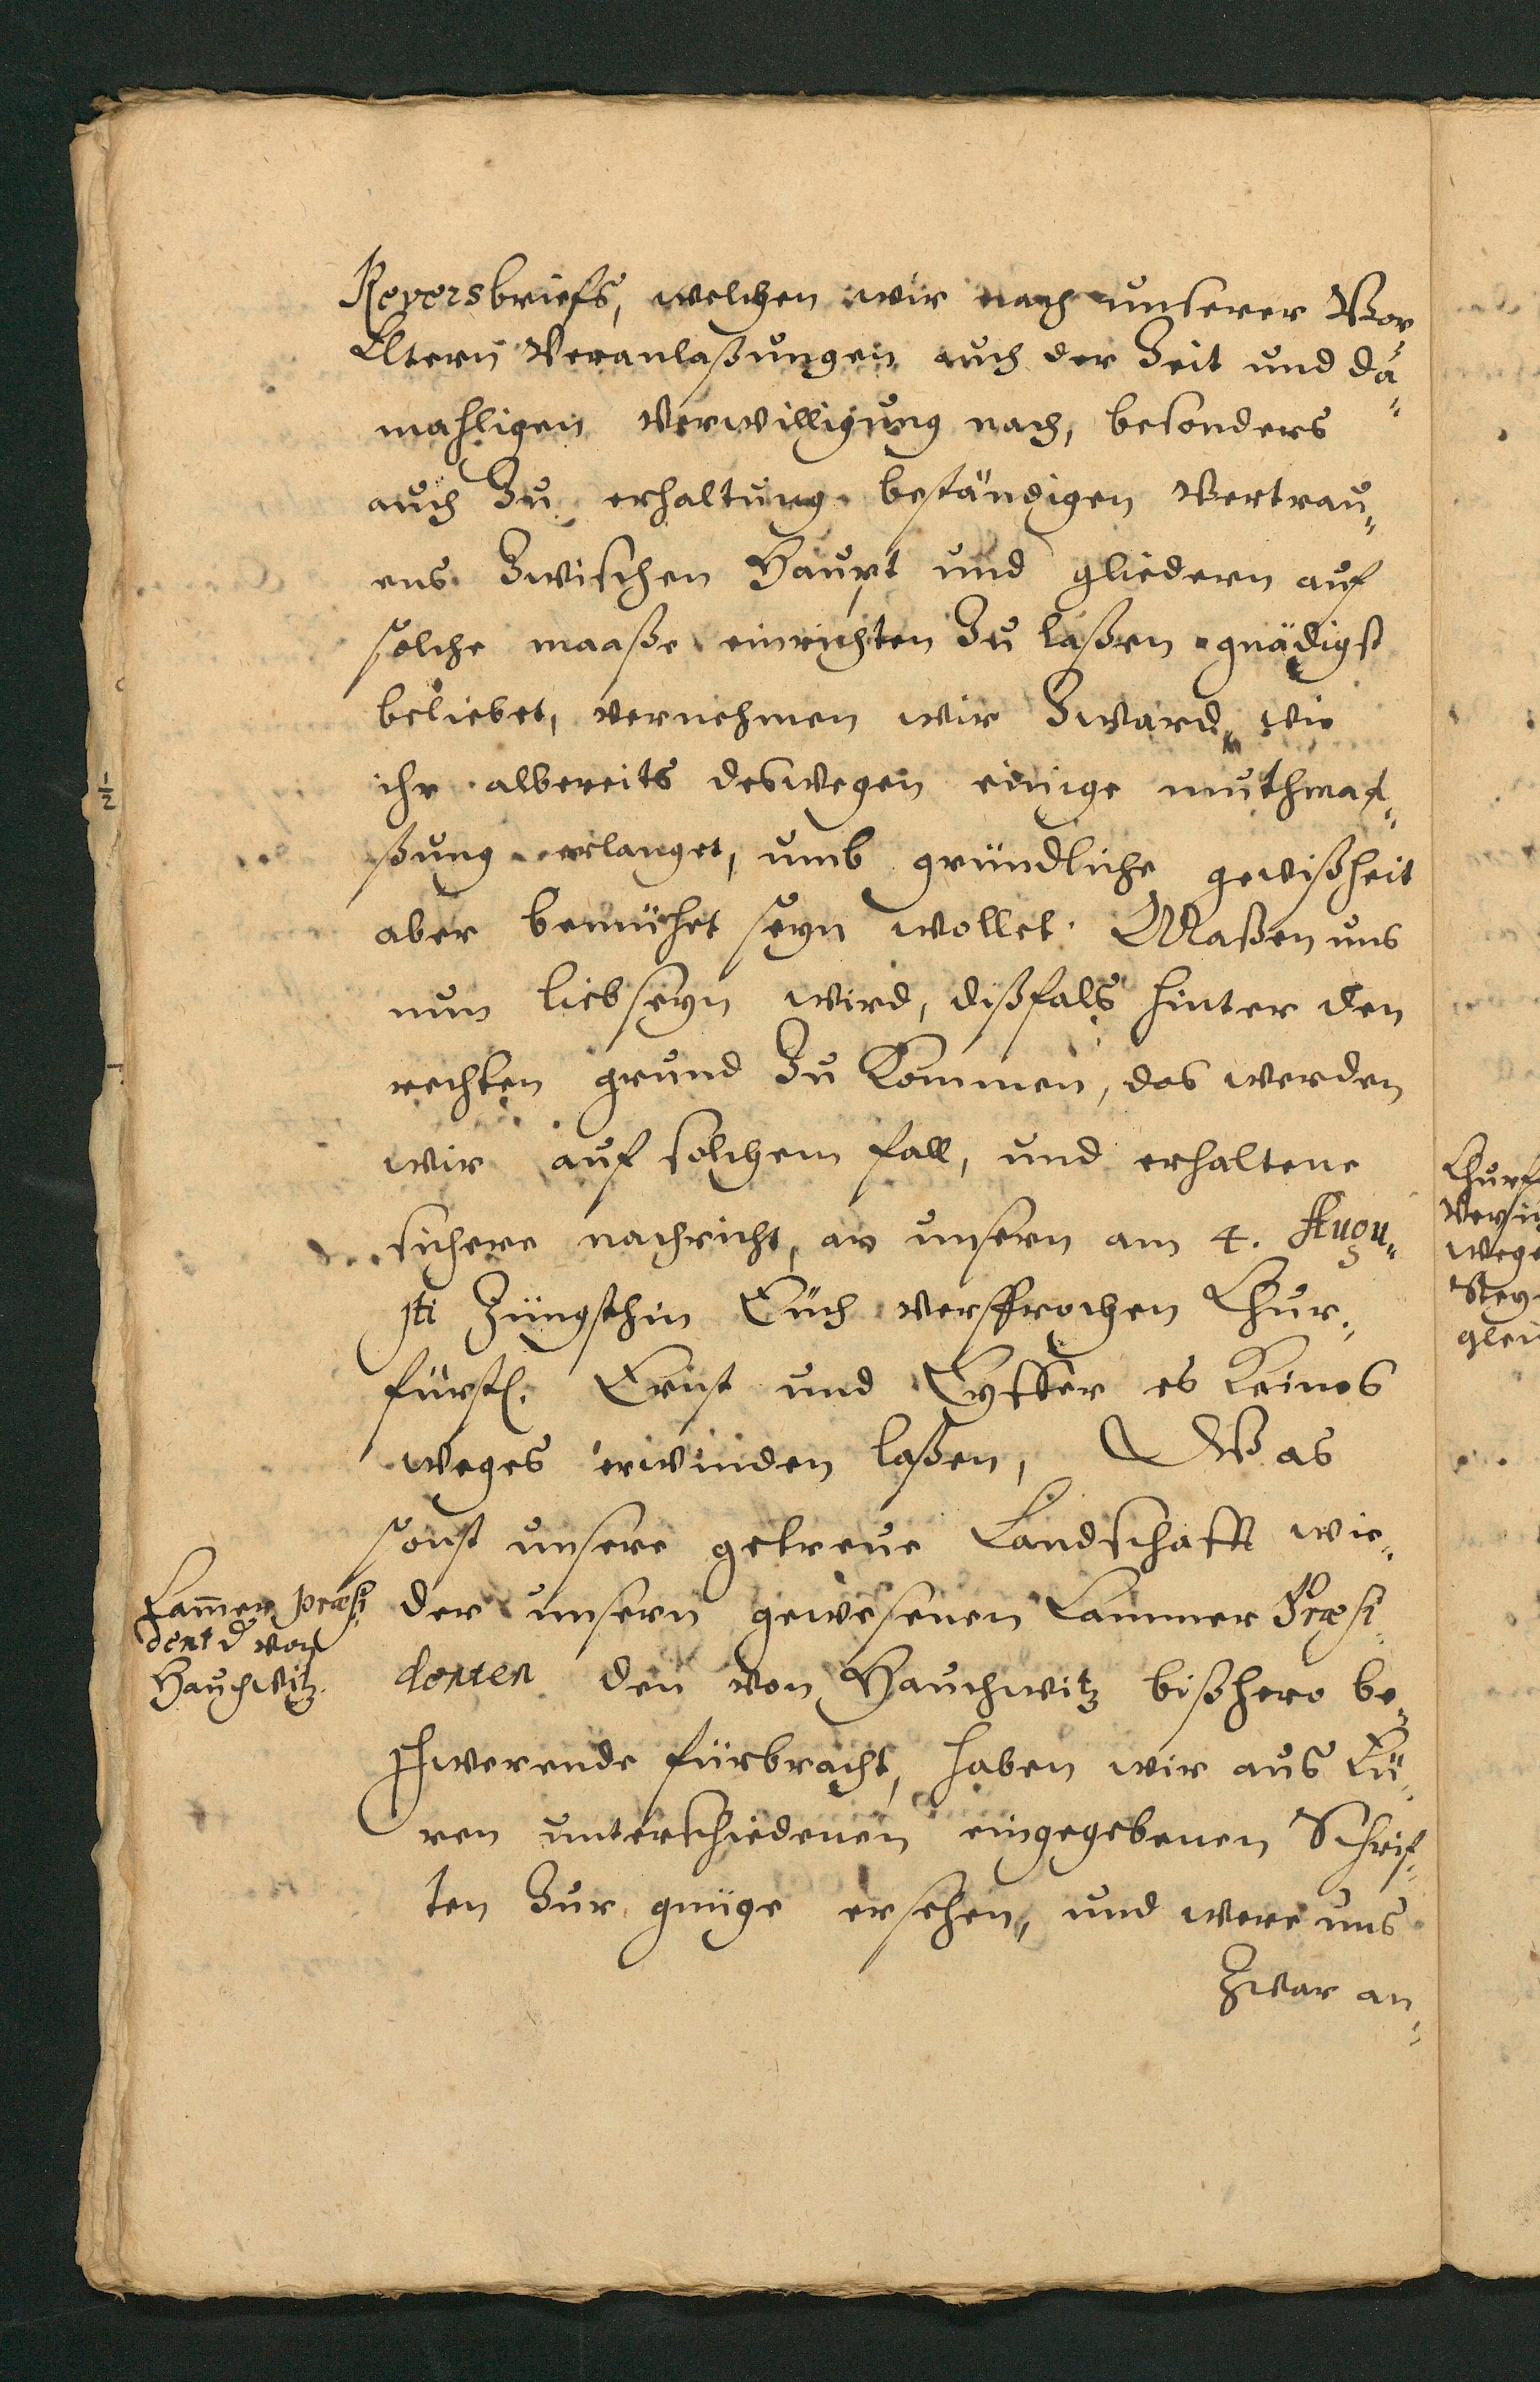 Reversbriefs, welchen wir nach unserer Vor
Eltern Veranlaßungen auch der Zeit und da-
mahligen Verwilligung nach, besonders
auch Zu erhaltung beständigen Vertrau-
ens Zwischen Haupt und gliedern auf
solche maaße einrichten Zu laßen gnädigst
beliebet, vernehmen wir Zward, wie
ihr albereits deswegen einige muthma-
ßung erlanget, umb gründliche gewißheit
aber bemühet seyn wollet. Maßen uns
nun lieb seyn wird, dißfals hinter den
rechten grund Zu Kommen, das werden
wir auf solchem fall, und erhaltene
sichere nachricht, an unsern am 4. Augu-
sti Jüngsthin Euch versprochen Chur-
fürstl. Ernst und Eyffer es Keines
weges erwinden laßen, Was
sonst unsere getreue Landschafft wie-
der unsern gewesenen Cammer Præsi-
denten den von Hauchwitz bißhero be-
schwerende fürbracht, haben wir aus Eü-
ren unterschiedenen eingegebenen Schrif-
ten Zur gnüge ersehen, und were uns
Zwar an-
Cam̄er præsi-
dent d von
Hauchwitz.